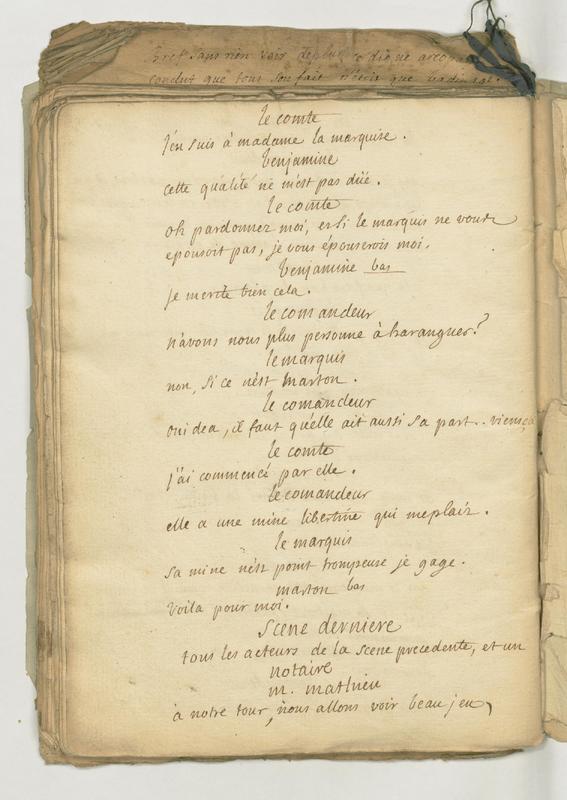 bref sans rien voir de plus ce digne areopa
conclut que tout son fait n'étoit que badinage.
le comte
j'en suis à madame la marquise.
benjamine
cette qualité ne m'est pas düe.
le comte
oh pardonnez moi, et si le marquis ne vous
epousoit pas, je vous épouserois moi.
benjamine bas
je merite bien cela.
le comandeur
n'avons nous plus personne à haranguer?
le marquis
non, si ce n'est marton.
le comandeur
oui dea, il faut qu'elle ait aussi sa part.. viensça
le comte
j'ai commencé par elle.
le comandeur
elle a une mine libertine qui me plait.
le marquis
sa mine n'est point trompeuse je gage.
marton bas
voila pour moi.
Scene derniere
tous les acteurs de la scene precedente, et un
notaire
m. mathieu
à notre tour, nous allons voir beau jeu,